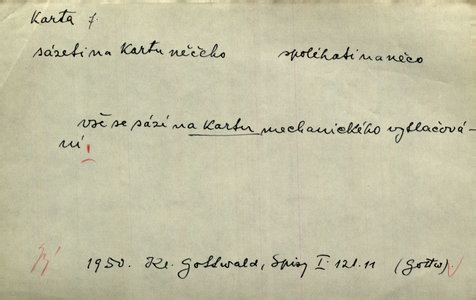 Karta f.
sázeti na Kartu něčeho spoléhati na něco
vše se sází na Kartu mechanického vytlačová-
ní!
1950. Kl. Gottwald, Spisy I. 121.11 (Gottw)